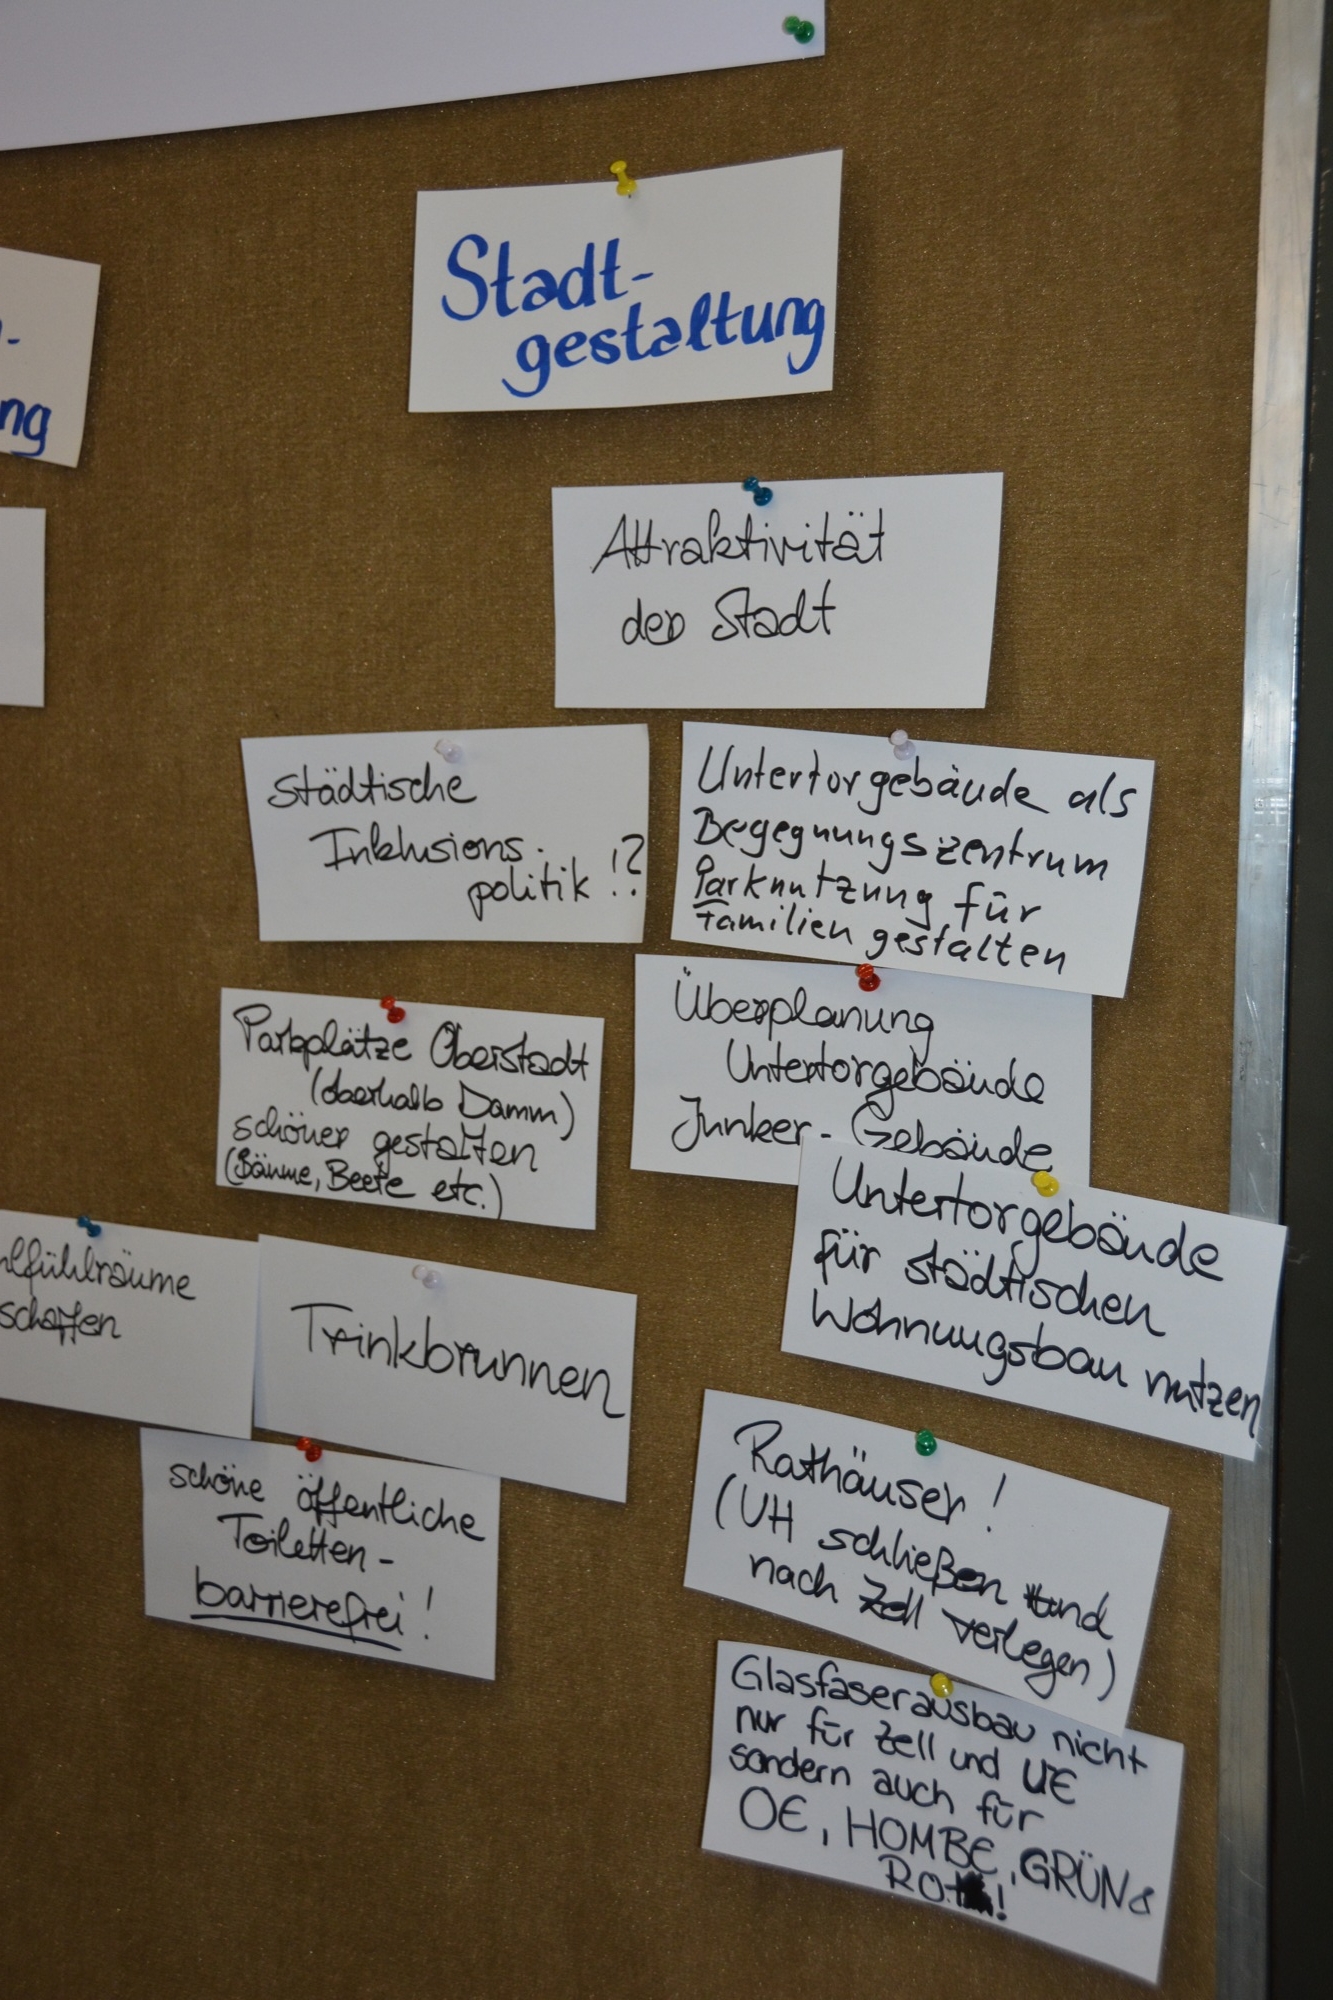 Stadt-
gestaltung
-
ng
Attraktivität
der Stadt
städtische
Inklusions-
politik !?
Untertorgebäude als
Begegnungszentrum
Parknutzung für
Familien gestalten
Parkplätze Oberstadt
(oberhalb Damm)
schöner gestalten
(Bäume, Beete etc.)
Überplanung
Untertorgebäude
Junker-Gebäude
Untertorgebäude
für städtischen
Wohnungsbau nutzen
hlfühlräume
schaffen
Trinkbrunnen
schöne öffentliche
Toiletten-
barrierefrei!
Rathäuser!
(UH schließen und
nach Zell verlegen)
Glasfaserausbau nicht
nur für Zell und UE
sondern auch für
OE, HOMBE, GRÜN &
ROT!